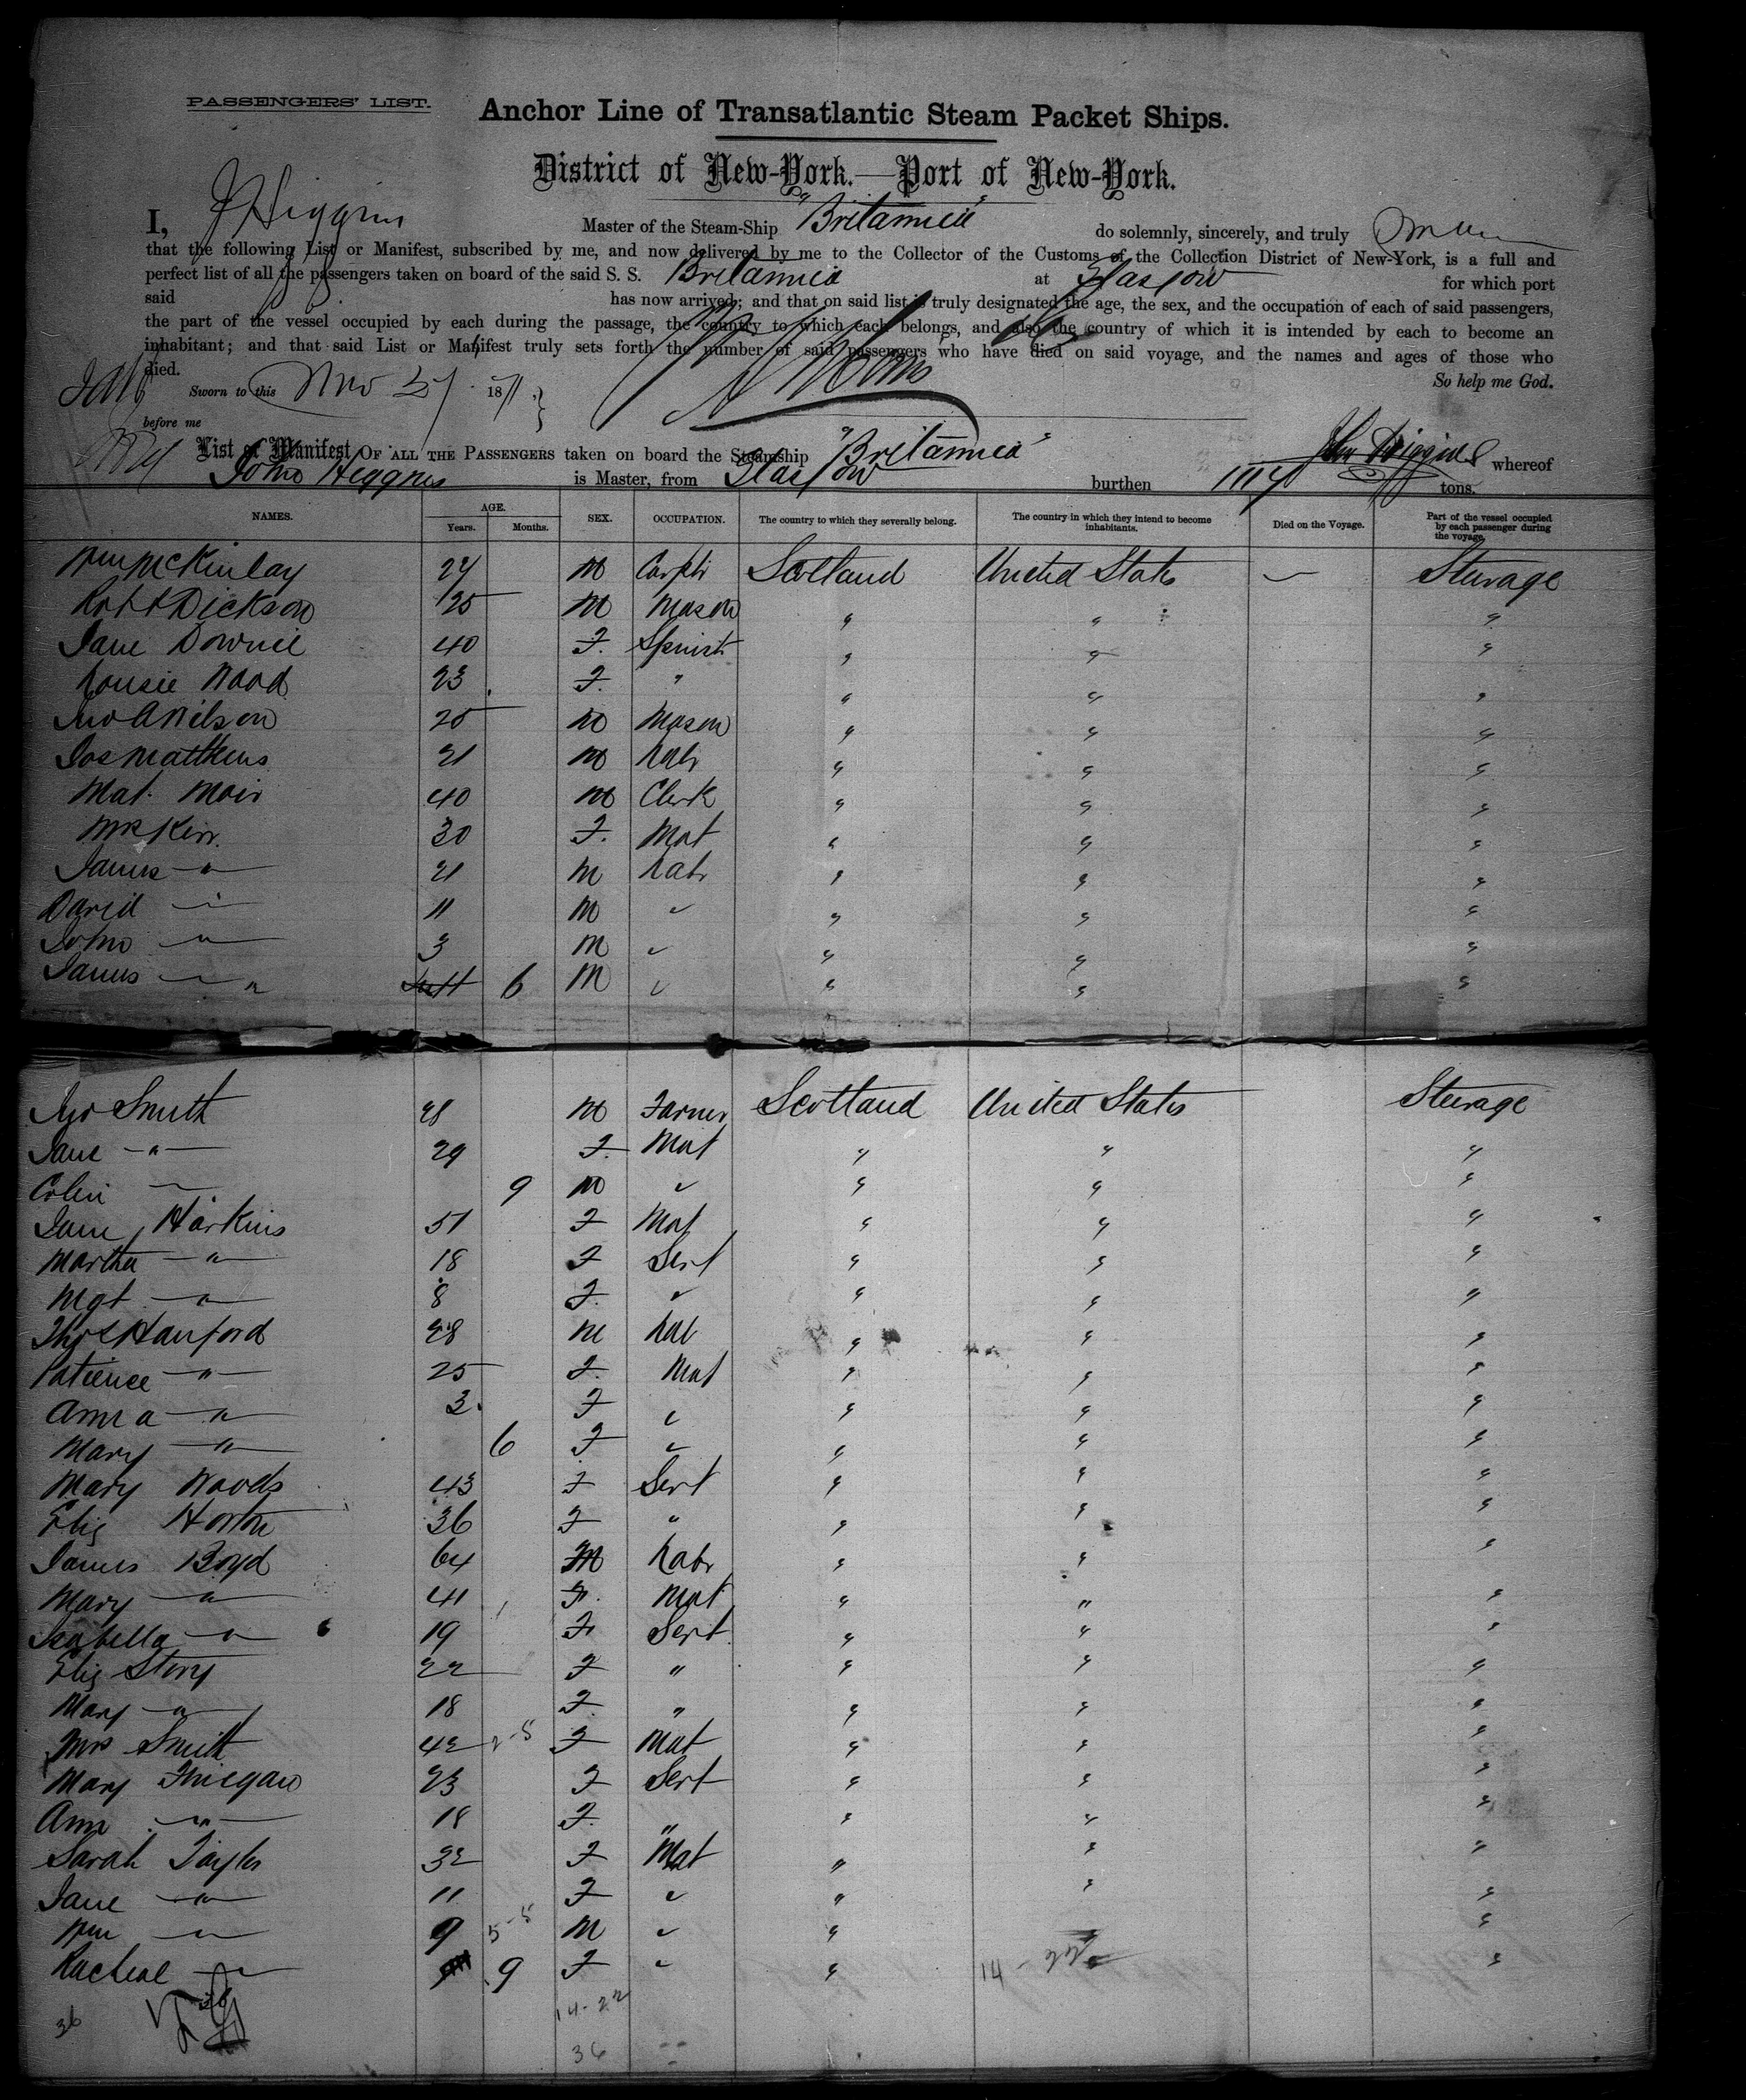 PASSENGERS' LIST.
Anchor Line of Transatlantic Steam Packet Ships.
District of New-York.—Port of New-York.
I, J Higgins Master of the Steam-Ship "Britannia" do solemnly, sincerely, and truly
that the following List or Manifest, subscribed by me, and now delivered by me to the Collector of the Customs of the Collection District of New-York, is a full and
perfect list of all the passengers taken on board of the said S. S. Britannia at Glasgow for which port
said has now arrived; and that on said list is truly designated the age, the sex, and the occupation of each of said passengers,
the part of the vessel occupied by each during the passage, the country to which each belongs, and also the country of which it is intended by each to become an
inhabitant; and that said List or Manifest truly sets forth the number of said passengers who have died on said voyage, and the names and ages of those who
died. So help me God.
Sworn to this Nov 27 1871
before me
List or Manifest OF ALL THE PASSENGERS taken on board the Steamship "Britannia" whereof
John Higgins is Master, from Glasgow burthen tons.
NAMES. AGE. Years. Months. SEX. OCCUPATION. The country to which they severally belong. The country in which they intend to become inhabitants. Died on the Voyage. Part of the vessel occupied by each passenger during the voyage.
Wm McKinlay 24 M Carptr Scotland United States — Steerage
Robt Dickson 25 M Mason " " "
Jane Downie 40 F. Spinstr " " "
Lousie Wood 23 F. " " " "
Jno A Wilson 25 M Mason " " "
Jos Matthews 21 M Labr " " "
Mat. Moir 40 M Clerk " " "
Mrs Kerr. 30 F. Mat " " "
James —"— 21 M Labr " " "
David —"— 11 M " " " "
John —"— 3 M " " " "
James —" 6 M " " " "
Jno Smith 28 M Farmer Scotland United States Steerage
Jane —"— 29 F. Mat " " "
Colin — 9 M " " " "
Jane Harkins 51 F Mat " " "
Martha —"— 18 F Sert " " "
Mgt —"— 8 F. " " " "
Thos Hanford 28 M Lab " " "
Patience —"— 25 F. Mat " " "
Anna —"— 3. F " " " "
Mary —"— 6 F " " " "
Mary Woods 43 F Sert " " "
Eliz Horton 36 F " " " "
James Boyd 64 M Labr " " "
Mary —"— 41 F. Mat " " "
Isabella —"— 19 F Sert " " "
Eliz Story 22 F " " " "
Mary —"— 18 F. " " " "
Mrs Smith 42 F Mat " " "
Mary Finegan 23 F Sert " " "
Ann —"— 18 F. " " " "
Sarah Taylor 32 F Mat " " "
Jane —"— 11 F " " " "
Wm —"— 9 5-5 M " " "
Racheal —"— 9 F " " 14 - 22 "
14-22
36 36
36